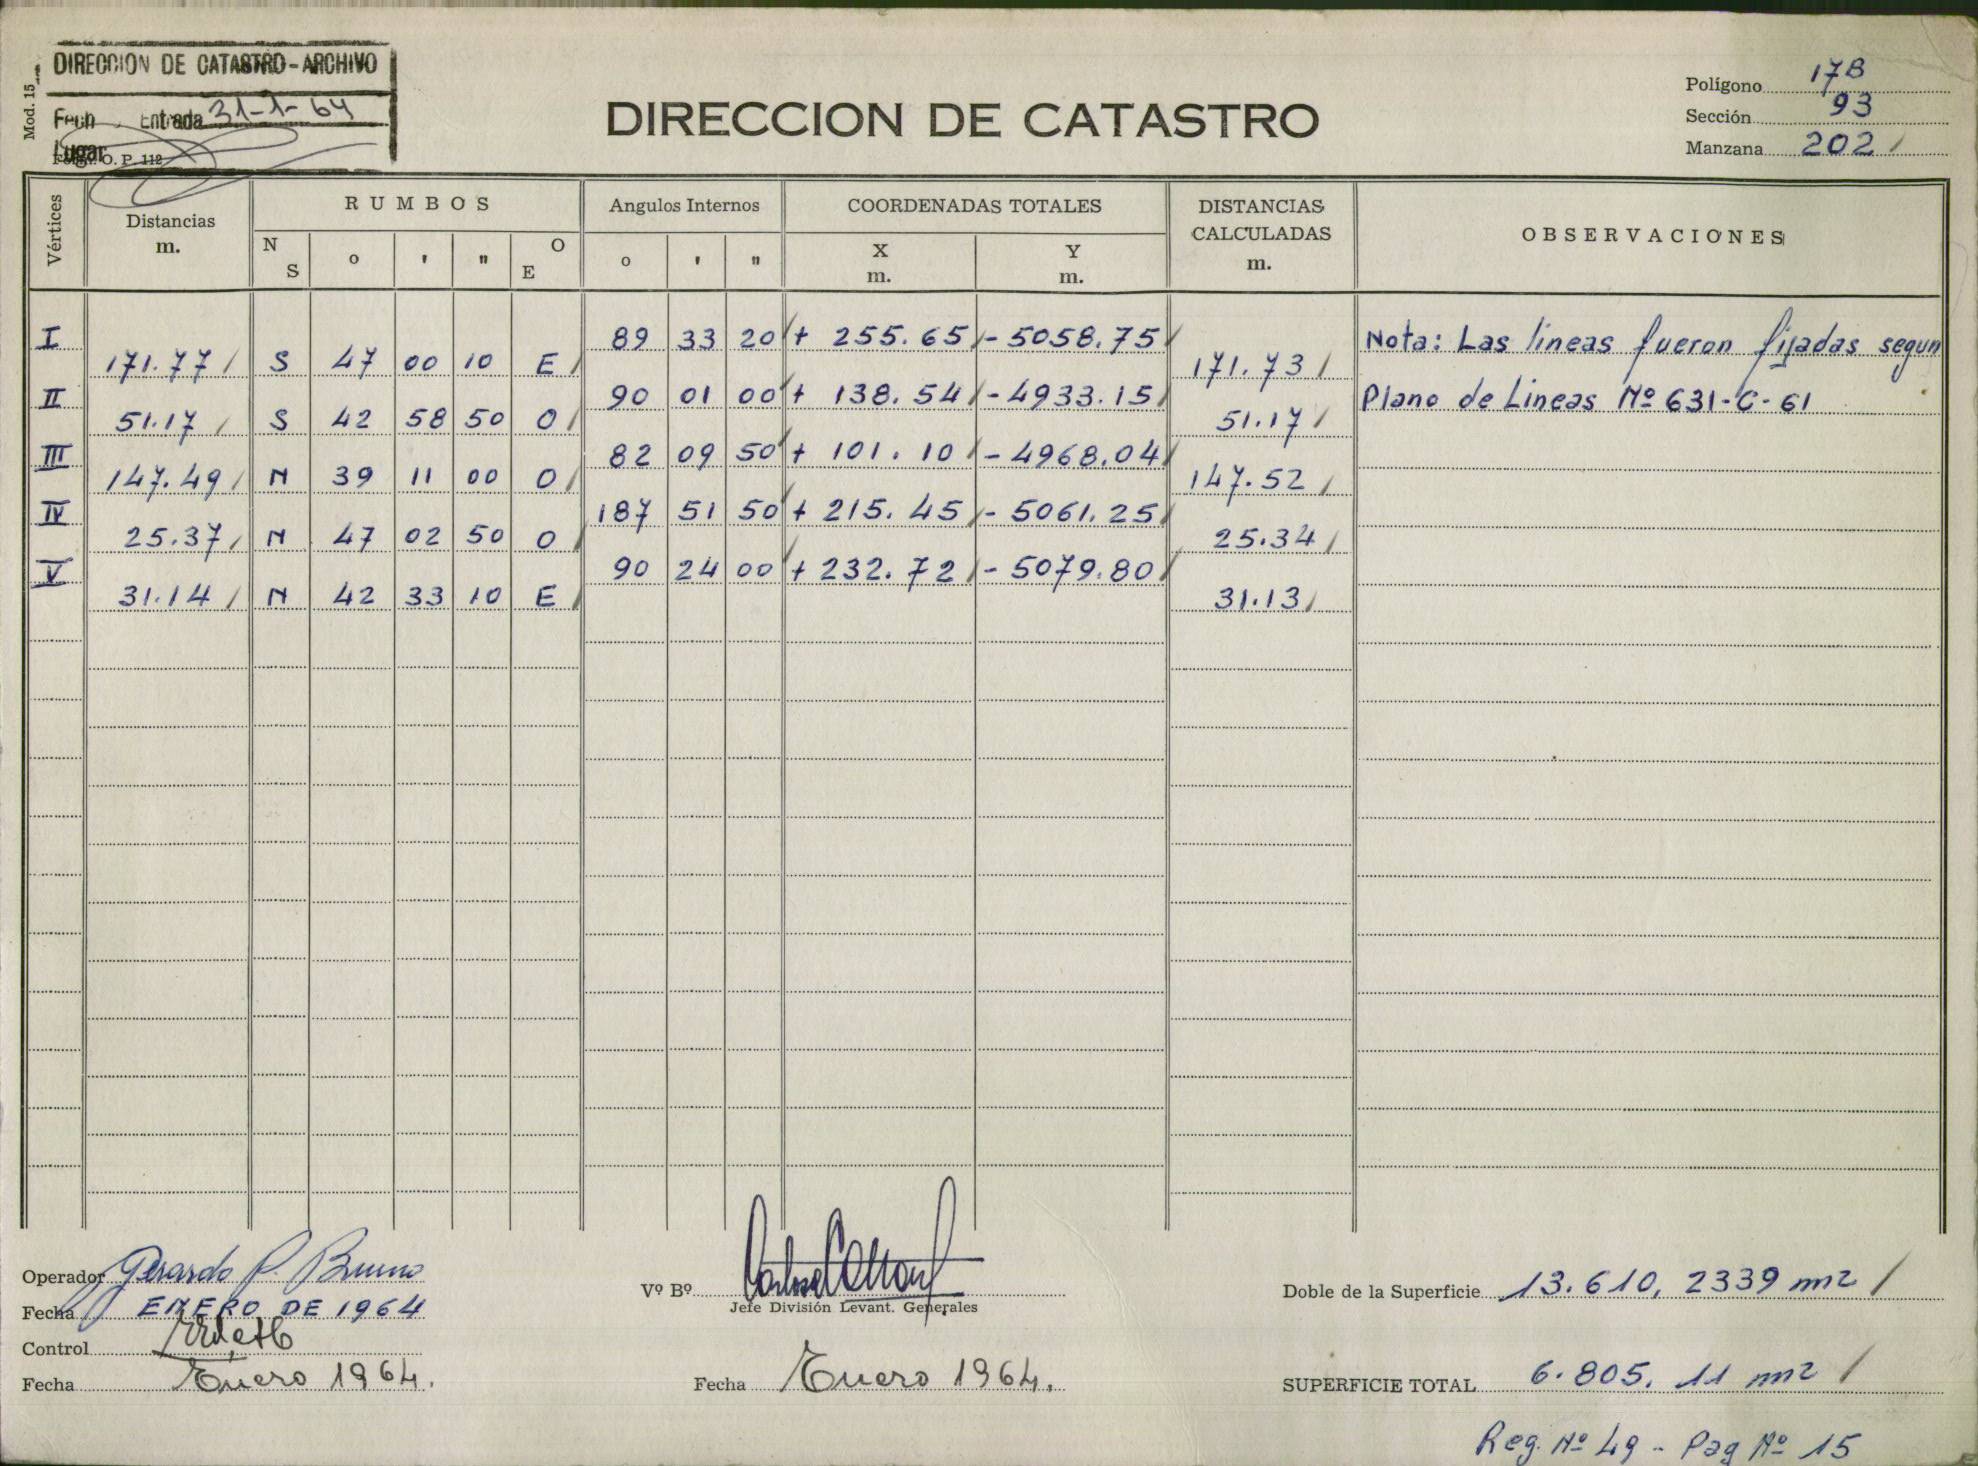 DIRECCION DE CATASTRO - ARCHIVO
Fech Entrada 31-1-64
Lugar
O. P. 112
Mod. 15
DIRECCION DE CATASTRO
Polígono 17B
Sección 93
Manzana 202
Vértices
Distancias m.
RUMBOS
N S ° ' " O E
Angulos Internos
° ' "
COORDENADAS TOTALES
X m. Y m.
DISTANCIAS CALCULADAS m.
OBSERVACIONES
I 89 33 20 + 255.65 - 5058.75
171.77 S 47 00 10 E 171.73
II 90 01 00 + 138.54 - 4933.15
51.17 S 42 58 50 O 51.17
III 82 09 50 + 101.10 - 4968.04
147.49 N 39 11 00 O 147.52
IV 187 51 50 + 215.45 - 5061.25
25.37 N 47 02 50 O 25.34
V 90 24 00 + 232.72 - 5079.80
31.14 N 42 33 10 E 31.13
Nota: Las lineas fueron fijadas segun
Plano de Lineas Nº 631-C-61
Operador Gerardo P. Bruno
Fecha ENERO DE 1964
Control
Fecha Enero 1964.
Vº Bº
Jefe División Levant. Generales
Fecha Enero 1964.
Doble de la Superficie 13.610, 2339 m2
SUPERFICIE TOTAL 6.805. 11 m2
Reg. Nº 49 - Pag Nº 15